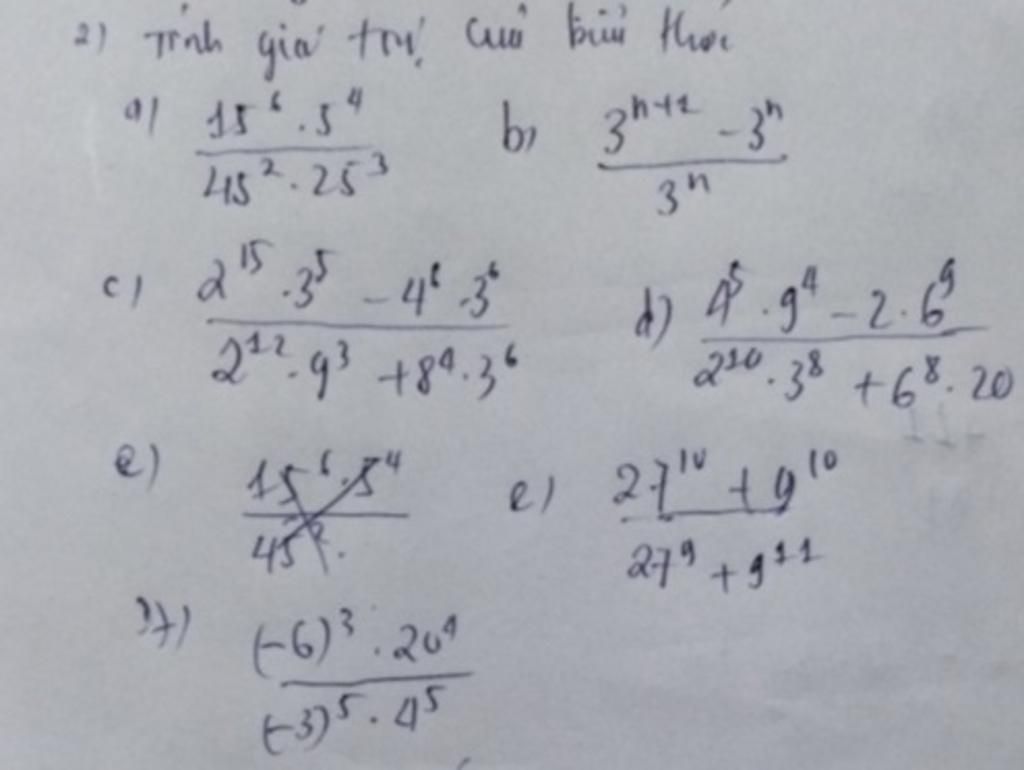 2) Tính giá trị của biểu thức
a) \frac{15^6 . 5^4}{45^2 . 25^3} b) \frac{3^{n+1} - 3^n}{3^n}
c) \frac{2^{15} . 3^5 - 4^6 . 3^6}{2^{12} . 9^3 + 8^4 . 3^6} d) \frac{4^5 . 9^4 - 2 . 6^9}{2^{10} . 3^8 + 6^8 . 20}
e) \frac{15^6 . 5^4}{45^2 .} e) \frac{27^{10} + 9^{10}}{27^9 + 9^{11}}
f) \frac{(-6)^3 . 20^4}{(-3)^5 . 4^5}